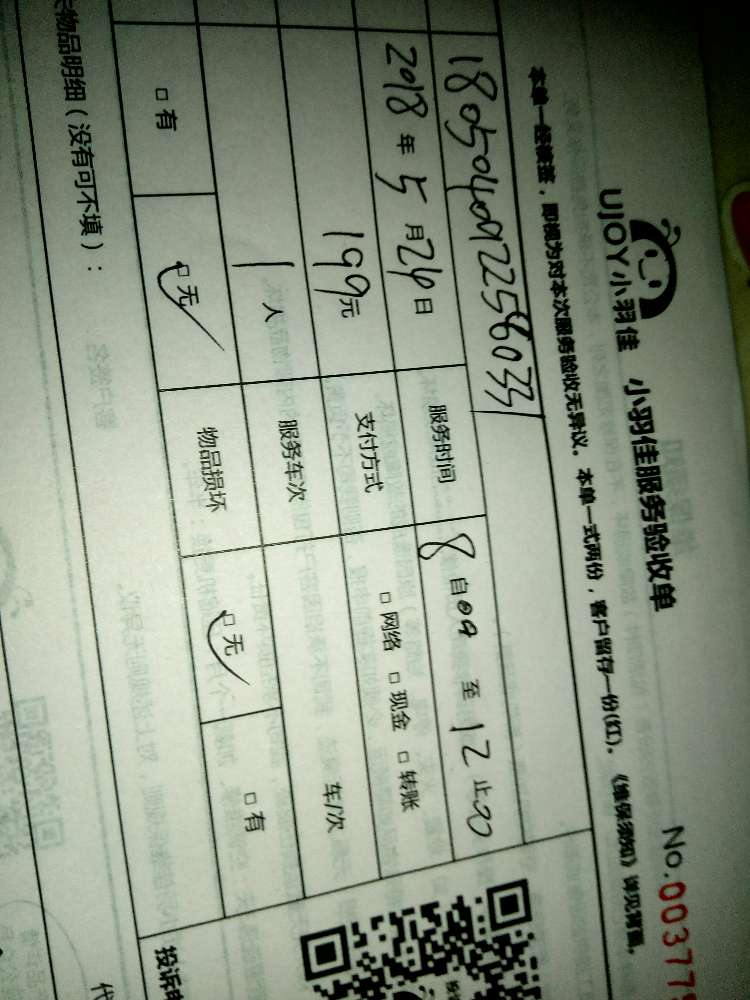 UJOY小羽佳 小羽佳服务验收单
No.003775
本单一经签签，即视为对本次服务验收无异议。本单一式两份，客户留存一份(红)。《维保须知》详见背面。
2018年5月26日 服务时间 8自 至12止00
199元 支付方式 □网络 □现金 □转账
1人 服务车次 车/次
□有 □无 物品损坏 □无 □有
物品明细（没有可不填）：
投诉
代